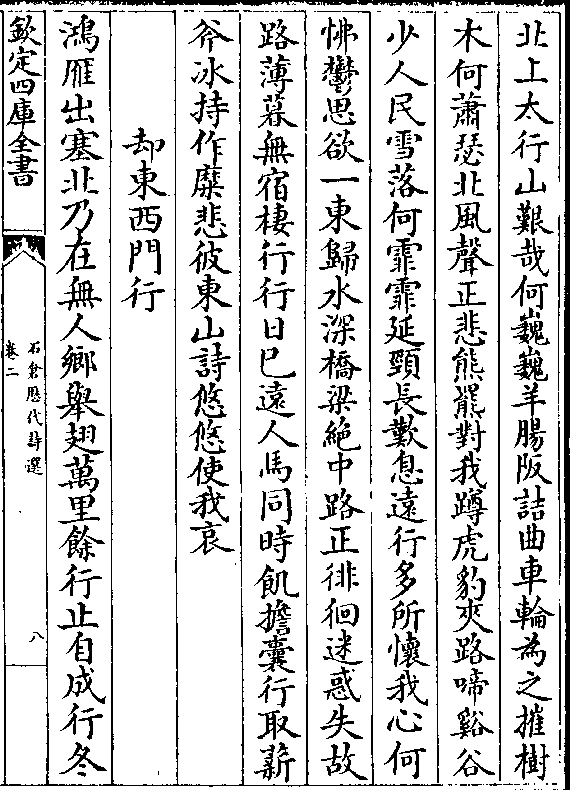 北上太行山艱哉何巍巍羊腸阪詰曲車輪為之摧樹
木何蕭瑟北風聲正悲熊羆對我蹲虎豹夾路啼谿谷
少人民雪落何霏霏延頸長歎息遠行多所懷我心何
怫鬱思欲一東歸水深橋梁絶中路正徘徊迷惑失故
路薄暮無宿棲行行日已遠人馬同時飢擔囊行取薪
斧冰持作糜悲彼東山詩悠悠使我哀
却東西門行
鴻雁出塞北乃在無人鄉舉翅萬里餘行止自成行冬
欽定四庫全書
石倉歷代詩選
卷二
八